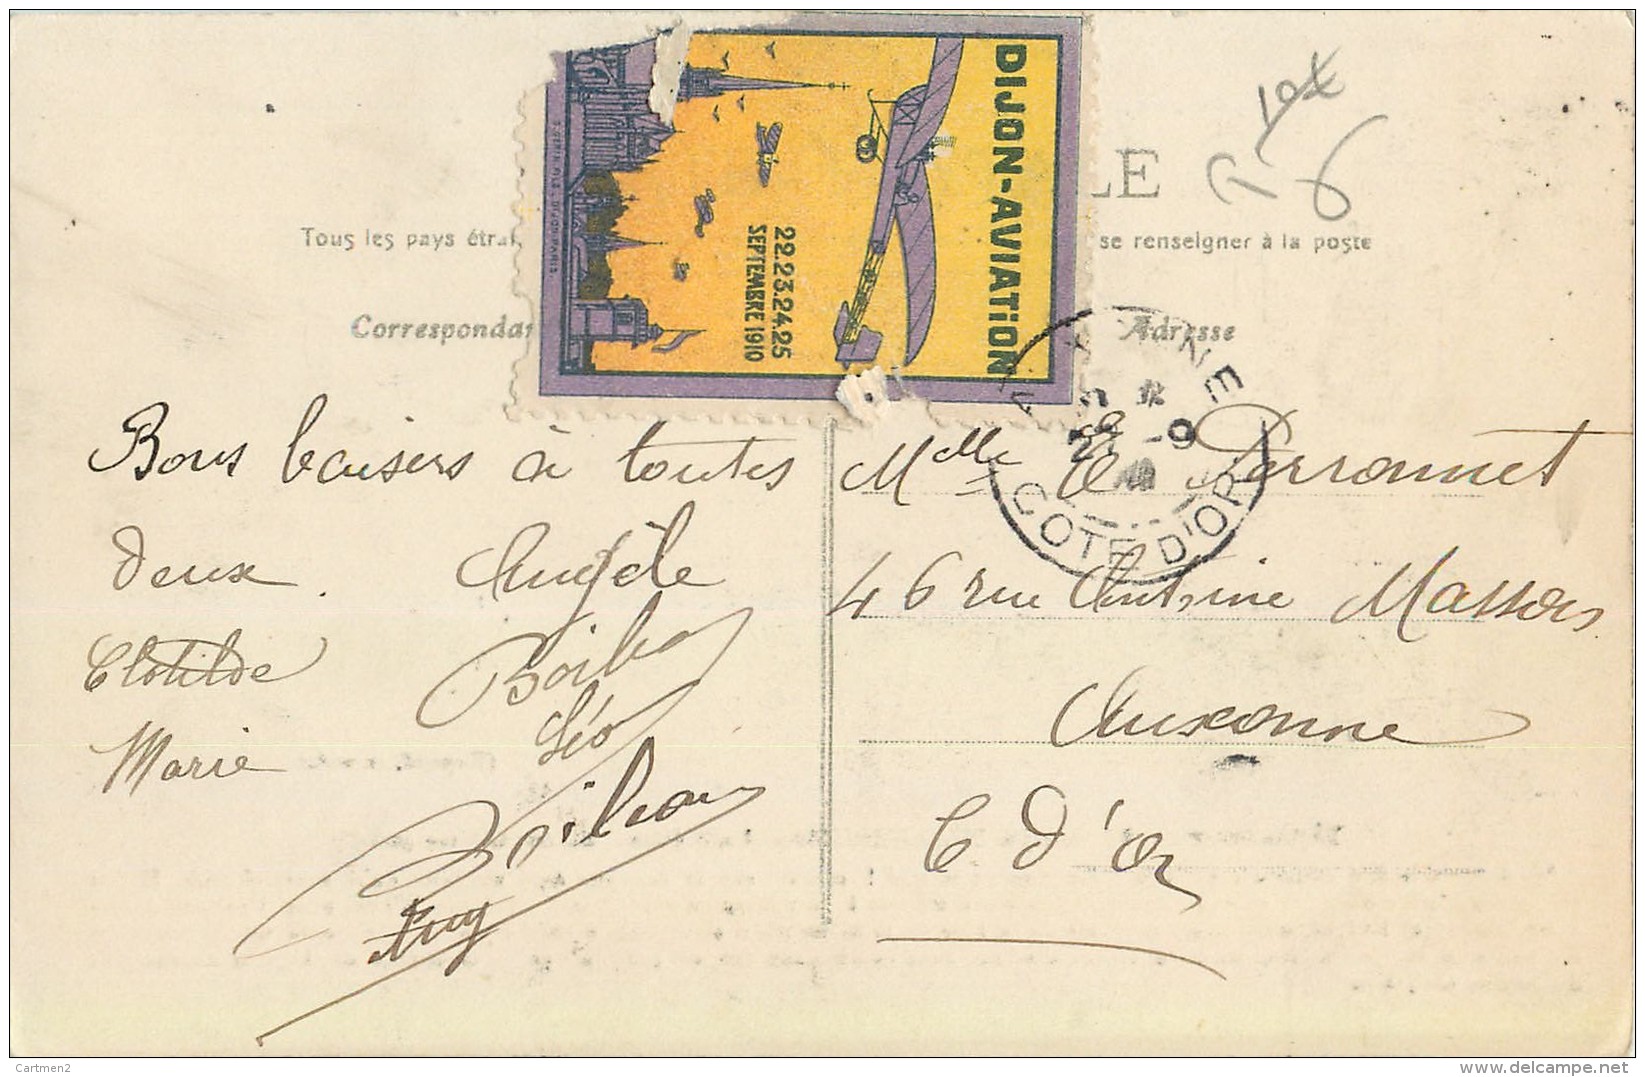 DIJON-AVIATION
22.23.24.25
SEPTEMBRE 1910
LE
Tous les pays étra
se renseigner à la poste
Correspondan
Adresse
COTE D'OR
Bons baisers à toutes
deux. Angèle
Clotilde
Marie
Léo
Melle Perronnet
46 rue Antoine Masson
Auxonne
C d'Or
Cartmen2
delcampe.net